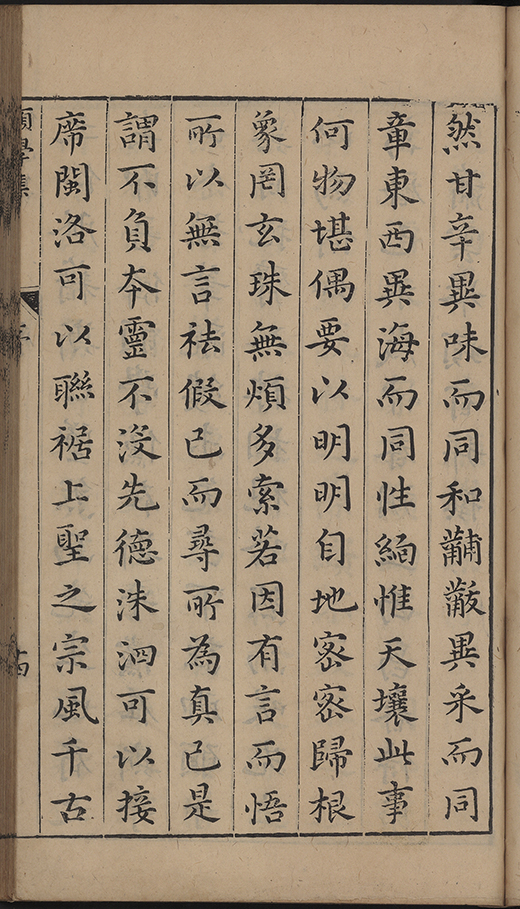 然甘辛異味而同和黼黻異采而同
章東西異海而同性緬惟天壤此事
何物堪偶要以明明自地密密歸根
象罔玄珠無煩多索若因有言而悟
所以無言祛假己而尋所為真己是
謂不負本靈不沒先德洙泗可以接
席閩洛可以聯裾上聖之宗風千古
序